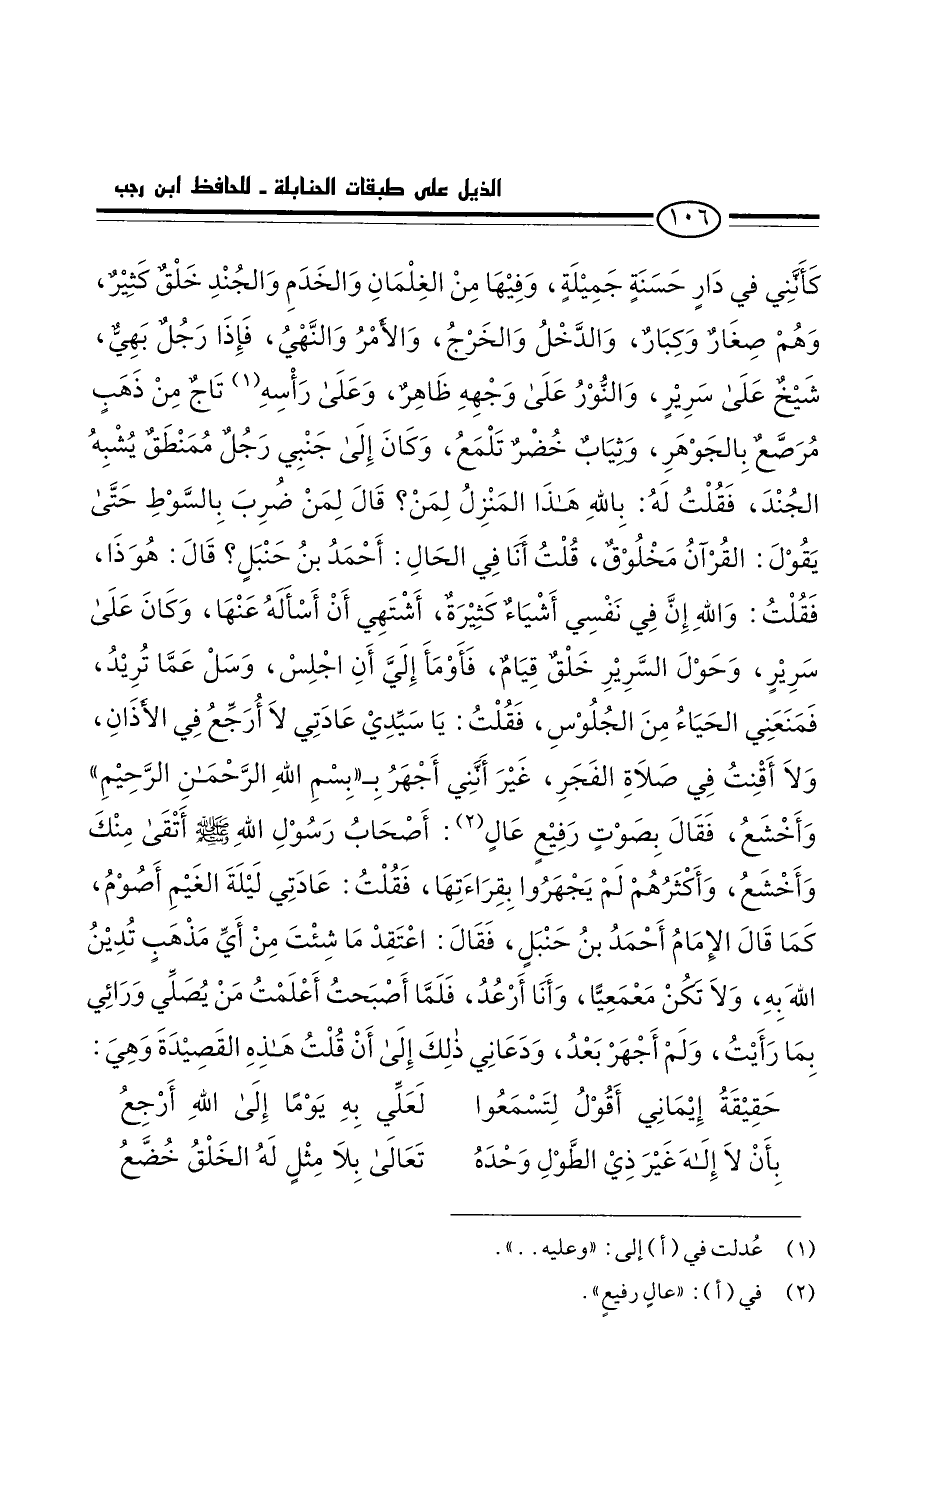 الذيل على طبقات الحنابلة ـ للحافظ ابن رجب
١٠٦
كَأَنَّنِي في دَارٍ حَسَنَةٍ جَمِيْلَةٍ، وَفِيْهَا مِنْ الغِلْمَانِ وَالخَدَمِ وَالجُنْدِ خَلْقٌ كَثِيْرٌ،
وَهُمْ صِغَارٌ وَكِبَارٌ، وَالدَّخْلُ وَالخَرْجُ، وَالأَمْرُ وَالنَّهْيُ، فَإِذَا رَجُلٌ بَهِيٌّ،
شَيْخٌ عَلَىٰ سَرِيْرٍ، وَالنُّوْرُ عَلَىٰ وَجْهِهِ ظَاهِرٌ، وَعَلَىٰ رَأْسِهِ(١) تَاجٌ مِنْ ذَهَبٍ
مُرَصَّعٌ بِالجَوْهَرِ، وَثِيَابٌ خُضْرٌ تَلْمَعُ، وَكَانَ إِلَىٰ جَنْبِي رَجُلٌ مُمَنْطَقٌ يُشْبِهُ
الجُنْدَ، فَقُلْتُ لَهُ: بِاللهِ هَـٰذَا المَنْزِلُ لِمَنْ؟ قَالَ لِمَنْ ضُرِبَ بِالسَّوْطِ حَتَّىٰ
يَقُوْلَ: القُرْآنُ مَخْلُوْقٌ، قُلْتُ أَنَا فِي الحَالِ: أَحْمَدُ بنُ حَنْبَلٍ؟ قَالَ: هُوَ ذَا،
فَقُلْتُ: وَاللهِ إِنَّ فِي نَفْسِي أَشْيَاءٌ كَثِيْرَةٌ، أَشْتَهِي أَنْ أَسْأَلَهُ عَنْهَا، وَكَانَ عَلَىٰ
سَرِيْرٍ، وَحَوْلَ السَّرِيْرِ خَلْقٌ قِيَامٌ، فَأَوْمَأَ إِلَيَّ أَنِ اجْلِسْ، وَسَلْ عَمَّا تُرِيْدُ،
فَمَنَعَنِي الحَيَاءُ مِنَ الجُلُوْسِ، فَقُلْتُ: يَا سَيِّدِيْ عَادَتِي لاَ أُرَجِّعُ فِي الأَذَانِ،
وَلاَ أَقْنِتُ فِي صَلاَةِ الفَجَرِ، غَيْرَ أَنَّنِي أَجْهَرُ بِـ«بِسْمِ اللهِ الرَّحْمَـٰنِ الرَّحِيْمِ»
وَأَخْشَعُ، فَقَالَ بِصَوْتٍ رَفِيْعٍ عَالٍ(٢): أَصْحَابُ رَسُوْلِ اللهِ ﷺ أَتْقَىٰ مِنْكَ
وَأَخْشَعُ، وَأَكْثَرُهُمْ لَمْ يَجْهَرُوا بِقِرَاءَتِهَا، فَقُلْتُ: عَادَتِي لَيْلَةَ الغَيْمِ أَصُوْمُ،
كَمَا قَالَ الإِمَامُ أَحْمَدُ بنُ حَنْبَلٍ، فَقَالَ: اعْتَقِدْ مَا شِئْتَ مِنْ أَيِّ مَذْهَبٍ تُدِيْنُ
اللهَ بِهِ، وَلاَ تَكُنْ مَعْمَعِيًّا، وَأَنَا أَرْعُدُ، فَلَمَّا أَصْبَحتُ أَعْلَمْتُ مَنْ يُصَلِّي وَرَائِي
بِمَا رَأَيْتُ، وَلَمْ أَجْهَرْ بَعْدُ، وَدَعَانِي ذٰلِكَ إِلَىٰ أَنْ قُلْتُ هَـٰذِهِ القَصِيْدَةَ وَهِيَ:
حَقِيْقَةُ إِيْمَانِي أَقُوْلُ لِتَسْمَعُوا لَعَلِّي بِهِ يَوْمًا إِلَىٰ اللهِ أَرْجِعُ
بِأَنْ لاَ إِلَـٰهَ غَيْرَ ذِيْ الطَّوْلِ وَحْدَهُ تَعَالَىٰ بِلاَ مِثْلٍ لَهُ الخَلْقُ خُضَّعُ
(١) عُدلت في (أ) إلى: «وعليه . . ».
(٢) في (أ): «عالٍ رفيعٍ».